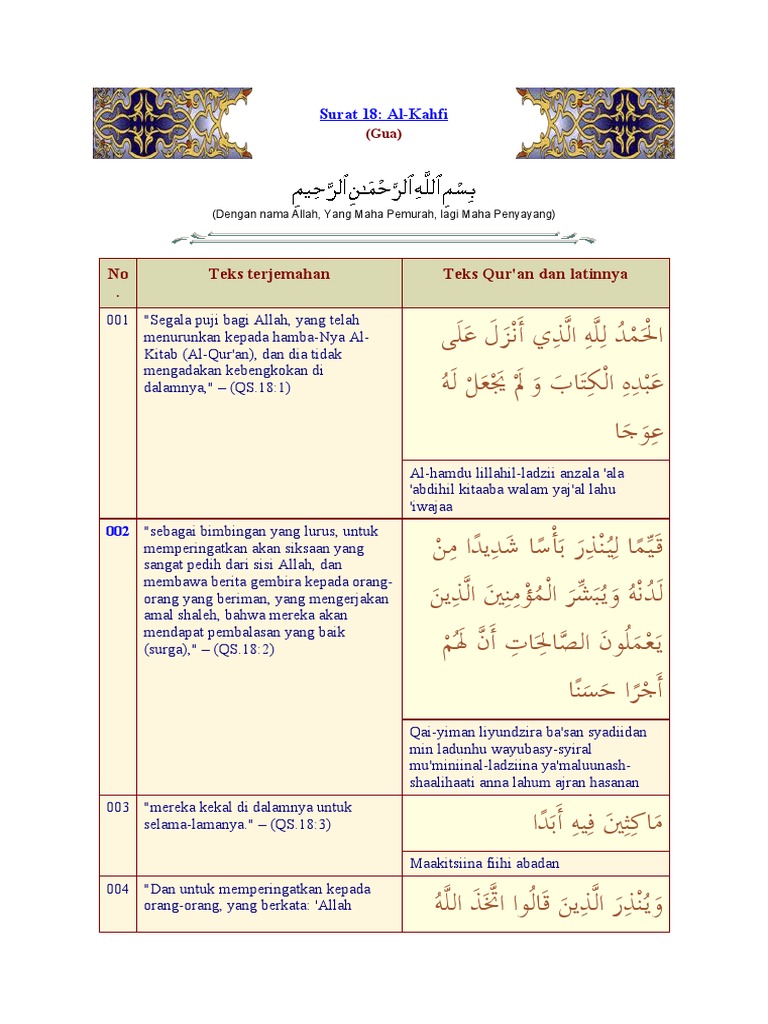 Surat 18: Al-Kahfi
(Gua)
بِسْمِ ٱللَّهِ ٱلرَّحْمَـٰنِ ٱلرَّحِيمِ
(Dengan nama Allah, Yang Maha Pemurah, lagi Maha Penyayang)
No
.
Teks terjemahan
Teks Qur'an dan latinnya
001
"Segala puji bagi Allah, yang telah
menurunkan kepada hamba-Nya Al-
Kitab (Al-Qur'an), dan dia tidak
mengadakan kebengkokan di
dalamnya," – (QS.18:1)
الْحَمْدُ لِلَّهِ الَّذِي أَنْزَلَ عَلَى
عَبْدِهِ الْكِتَابَ وَ لَمْ يَجْعَلْ لَهُ
عِوَجَا
Al-hamdu lillahil-ladzii anzala 'ala
'abdihil kitaaba walam yaj'al lahu
'iwajaa
002
"sebagai bimbingan yang lurus, untuk
memperingatkan akan siksaan yang
sangat pedih dari sisi Allah, dan
membawa berita gembira kepada orang-
orang yang beriman, yang mengerjakan
amal shaleh, bahwa mereka akan
mendapat pembalasan yang baik
(surga)," – (QS.18:2)
قَيِّمًا لِيُنْذِرَ بَأْسًا شَدِيدًا مِنْ
لَدُنْهُ وَيُبَشِّرَ الْمُؤْمِنِينَ الَّذِينَ
يَعْمَلُونَ الصَّالِحَاتِ أَنَّ لَهُمْ
أَجْرًا حَسَنًا
Qai-yiman liyundzira ba'san syadiidan
min ladunhu wayubasy-syiral
mu'miniinal-ladziina ya'maluunash-
shaalihaati anna lahum ajran hasanan
003
"mereka kekal di dalamnya untuk
selama-lamanya." – (QS.18:3)
مَاكِثِينَ فِيهِ أَبَدًا
Maakitsiina fiihi abadan
004
"Dan untuk memperingatkan kepada
orang-orang, yang berkata: 'Allah
وَيُنْذِرَ الَّذِينَ قَالُوا اتَّخَذَ اللَّهُ